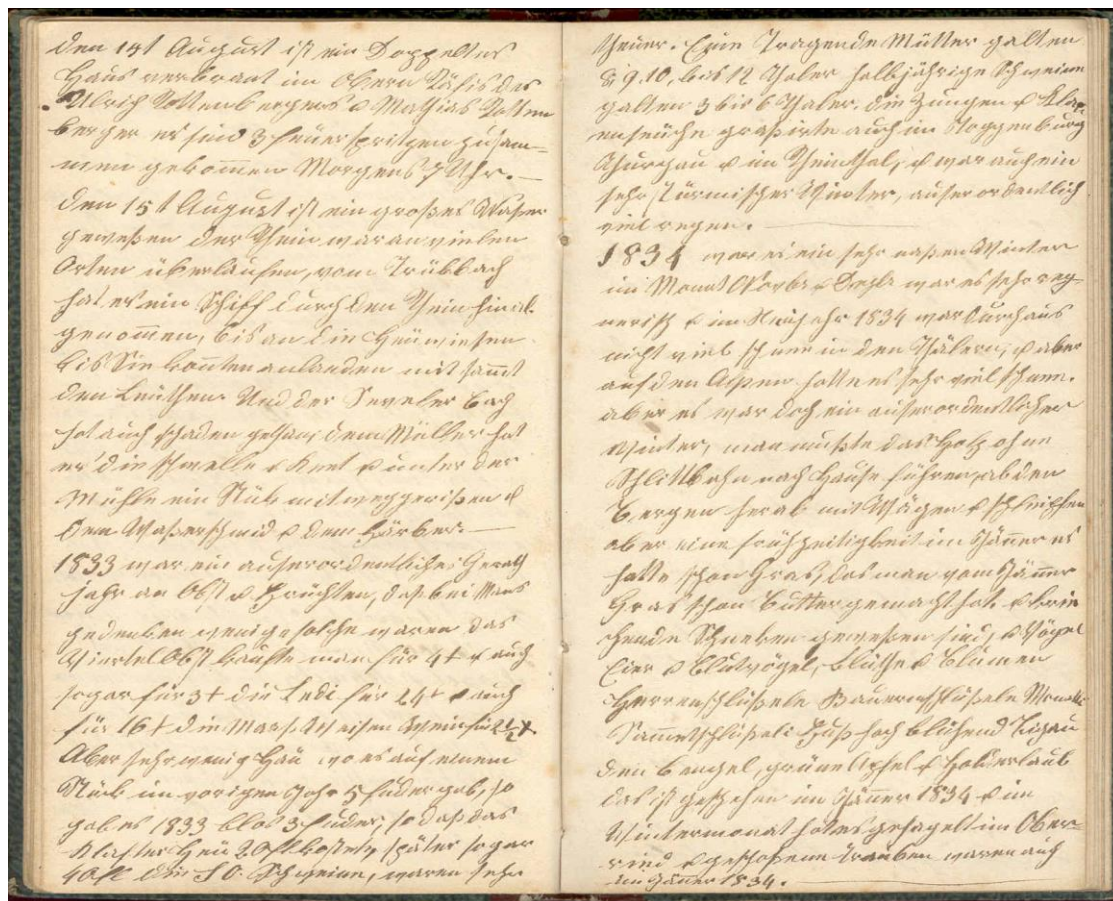 Den 14t August ist ein Doppeltes
Haus verbrant im Obern Räfis des
Ulrich Rottenbergers & Mathias Rotten
berger es sind 3 Feuerspritzen zusam=
men gekommen Morgens 7 Uhr. —
Den 15t August ist ein großes Waßer
geweßen der Rhein war an vielen
Orten überlaufen, vom Trübbach
hat es ein Schiff durch den Rhein hinab
genommen, bis an die Heüwiesen
bis Sie konnten anlanden mit samt
den Leüthen. Und der Seveler bach
hat auch schaden gethan, dem Müller hat
er die schwelle & & unter der
Mühle ein Stük mit weggerißen &
dem Waßerschmid & dem Färber. —
1833 war ein außerordentliches Gerath
jahr an Obst & Früchten, daß bei Mans
gedenken wenige solche waren das
Viertel Obst kaufte man für 4+ & auch
sogar für 3+ die Ledi für 24+ & auch
für 16+ die Maas Wein für 2½+
Aber sehr wenig Häu wo es auf einem
Stük im vorigen Jahr 5 fuder gab, so
gab es 1833 blos 3 fuder, so daß das
Klafter Heü 20fl kostete, später sogar
40fl die Schweine, waren sehr
theuer. Eine Tragende Mütter galten
8, 9. 10, bis 12 Thaler halbjährige Schweine
galten 3 bis 6 Thaler. die Zungen & Klau
enseüche graßirte auch im Toggenburg
Thurgau & im Rheinthal, & war auch ein
sehr stürmischer Winter, auserordentlich
viel regen. —
1834 war es ein sehr naßen Winter
im Monat Novbr & Dezbr war es sehr reg=
nerisch & im Neujahr 1834 war durchaus
nicht viel schnee in den Thälern, & aber
auf den Alpen hatte es sehr viel schnee.
aber es war doch ein auserordentlicher
Winter, man mußte das Holz ohne
Schlittbahn nach Hause führen, ab den
Bergen herab mit Wägen & schleipfen
aber eine frühzeitigkeit im Jänner es
hatte schon Gras, das man vom Jänner
Gras schon Butter gemacht hat, & krie
chende Schneken geweßen sind, & Vögel
Eier & Blutvögel, Blüthe & Blümen
Herrenschlüßele Bauernschlüßele
Sammetschlüßeli Fuß hoch blühend
den bengel, grüne Apfel & Holderlaub
das ist geschehen im Jänner 1834 & im
Wintermonat hat es gehagelt im Ober=
ried & geschoßene Trauben waren auch
im Jänner 1834. —